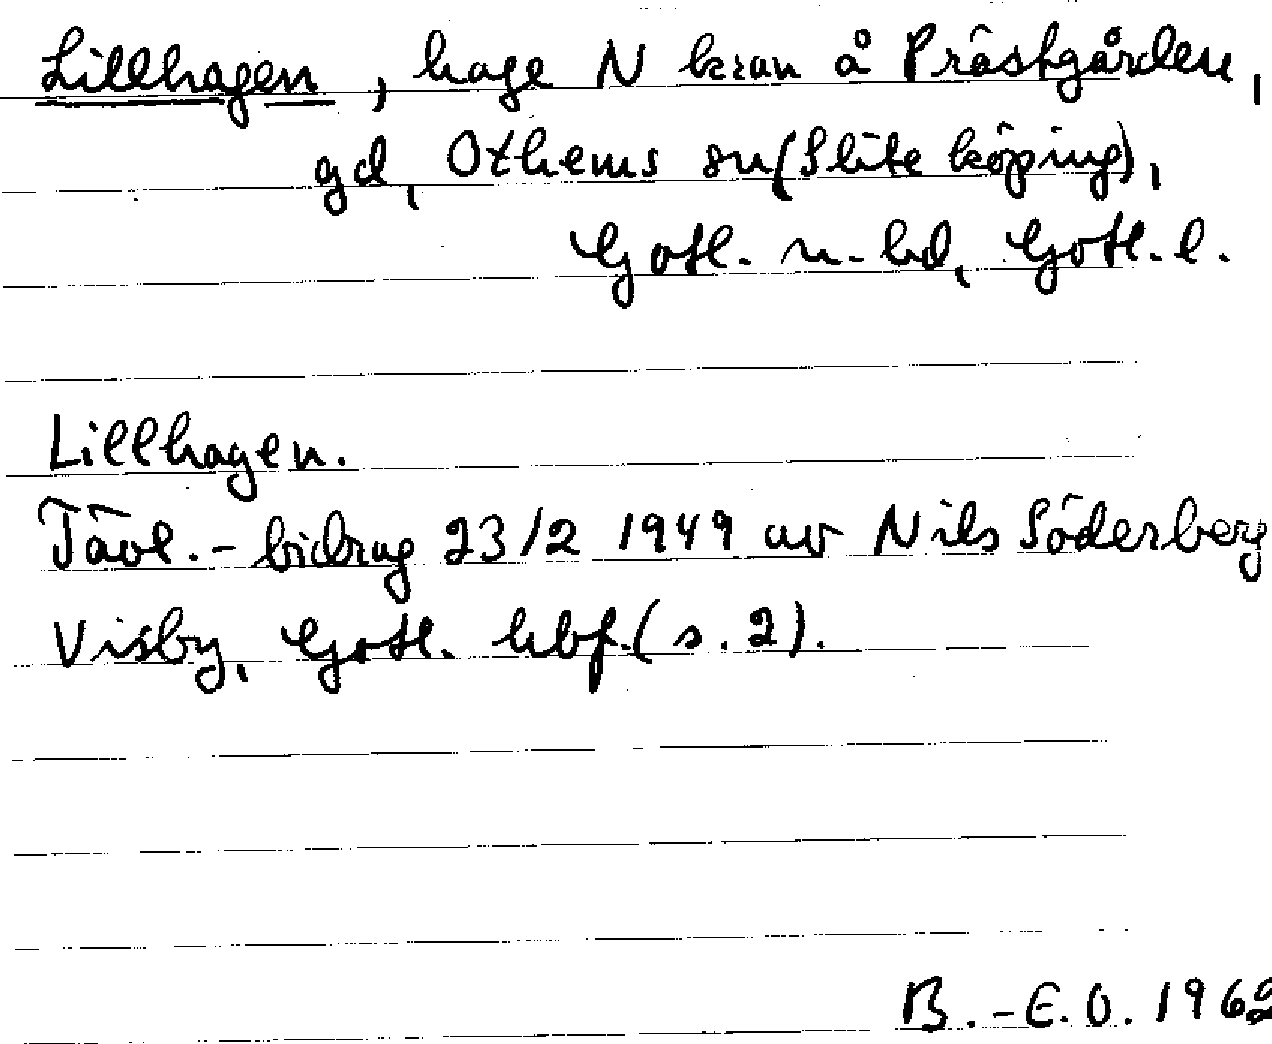 Lillhagen, hage N kran å Prästgården,
gd, Othems sn (Slite köping),
Gotl. n. hd, Gotl. l.
Lillhagen.
Tävl.-bidrag 23/2 1949 av Nils Söderberg
Visby, Gotl. hbf. (s. 2).
B.-E.O. 1962